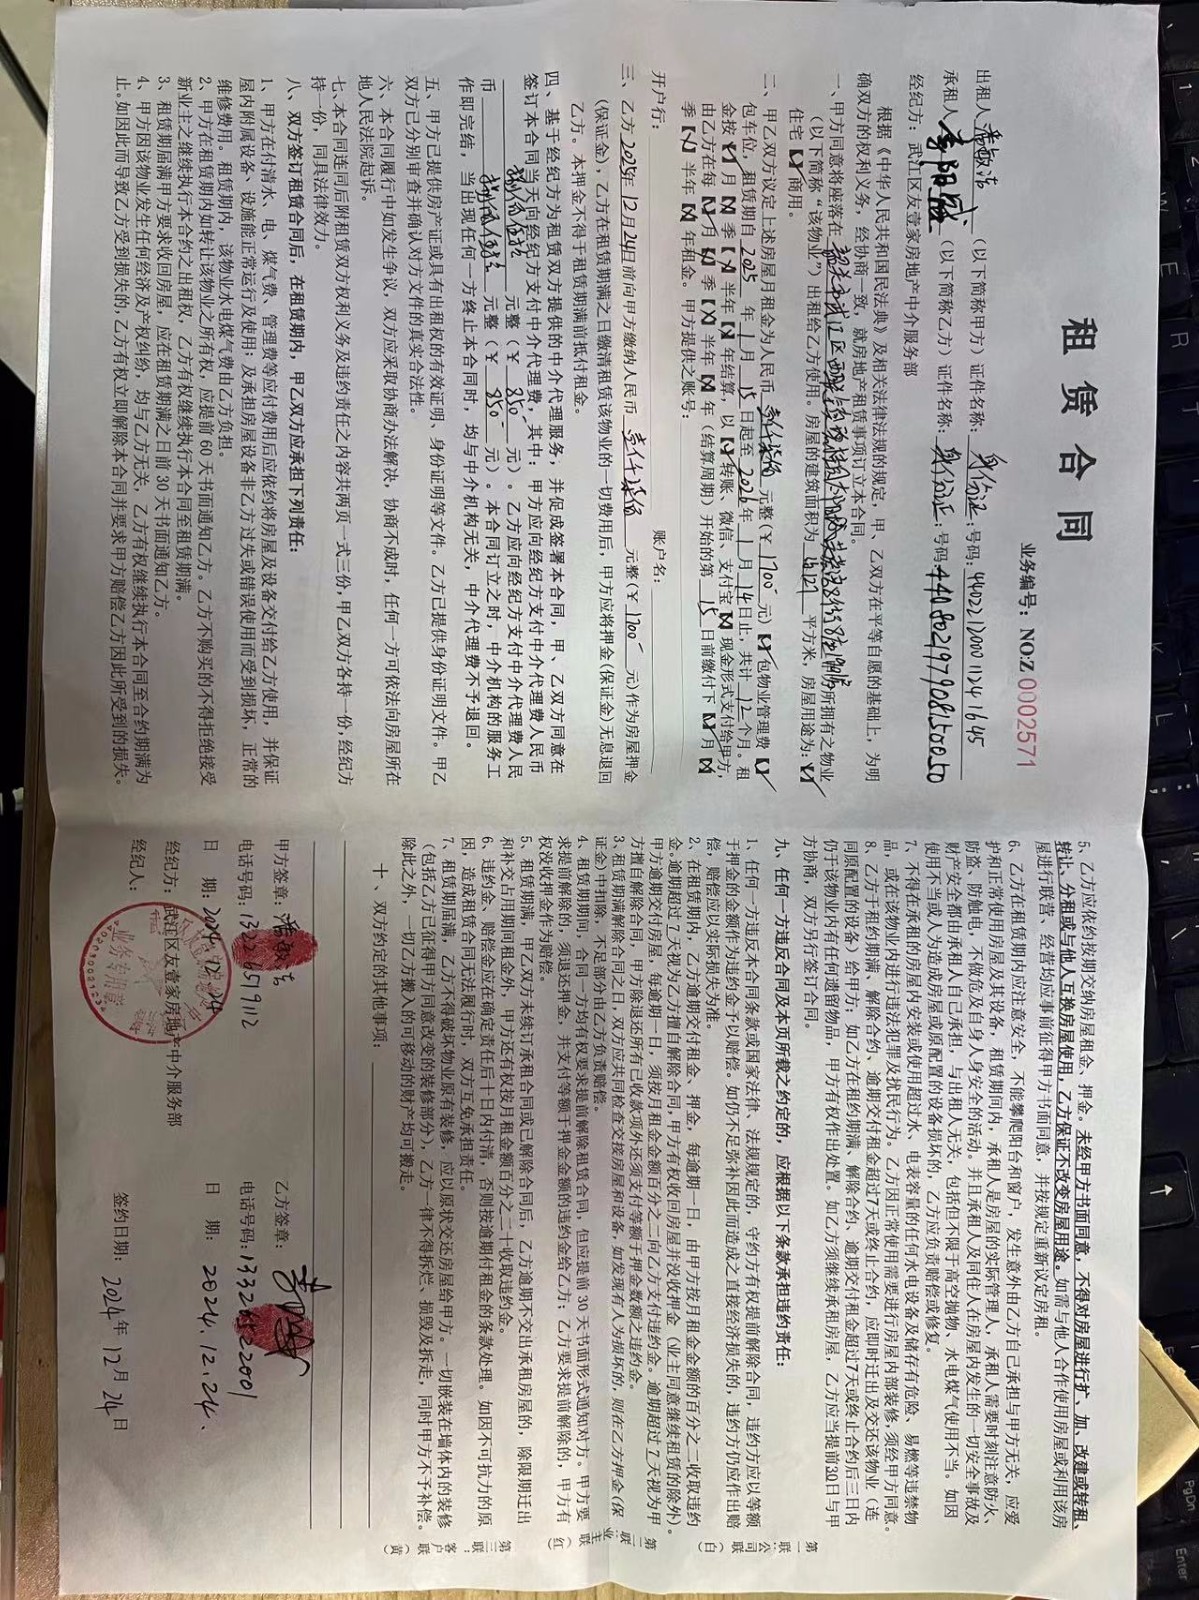 租赁合同
业务编号：NO:Z 0002571
出租人 （以下简称甲方）证件名称：身份证：号码：440211200011241645
承租人 （以下简称乙方）证件名称：身份证：号码：440802197908150050
经纪方：武江区友壹家房地产中介服务部
根据《中华人民共和国民法典》及相关法律法规的规定，甲、乙双方在平等自愿的基础上，为明
确双方的权利义务，经协商一致，就房地产租赁事项订立本合同。
一、甲方同意将座落在 韶关市武江区 的所拥有之物业
（以下简称“该物业”）出租给乙方使用。房屋的建筑面积为 平方米，房屋用途为：
住宅 商用。
二、甲乙双方议定上述房屋月租金为人民币 壹仟柒佰 元整（¥ 1700 元） 包物业管理费
包车位，租赁期自 2025 年 1 月 15 日起至 2026 年 1 月 14 日止，共计 12 个月。租
金按 月 季 半年 年结算，以 转账、微信、支付宝 现金形式支付给甲方，
由乙方在每 月 季 半年 年（结算周期）开始的第 15 日前缴付下 月
季 半年 年租金。甲方提供之账号：
开户行： 账户名：
三、乙方 2025年12月24日前向甲方缴纳人民币 壹仟柒佰 元整（¥ 1700 元）作为房屋押金
（保证金），乙方在租赁期满之日缴清租赁该物业的一切费用后，甲方应将押金（保证金）无息退回
乙方。本押金不得于租赁期满前抵付租金。
四、基于经纪方为租赁双方提供的中介代理服务，并促成签署本合同，甲、乙双方同意在
签订本合同当天向经纪方支付中介代理费，其中：甲方应向经纪方支付中介代理费人民币
捌佰伍拾 元整（¥ 850 元）。乙方应向经纪方支付中介代理费人民
币 捌佰伍拾 元整（¥ 850 元）。本合同订立之时，中介机构的服务工
作即完结，当出现任何一方终止本合同时，均与中介机构无关，中介代理费不予退回。
五、甲方已提供房产证或具有出租权的有效证明、身份证明等文件。乙方已提供身份证明文件。甲乙
双方已分别审查并确认对方文件的真实合法性。
六、本合同履行中如发生争议，双方应采取协商办法解决，协商不成时，任何一方可依法向房屋所在
地人民法院起诉。
七、本合同连同后附租赁双方权利义务及违约责任之内容共两页一式三份，甲乙双方各持一份，经纪方
持一份，同具法律效力。
八、双方签订租赁合同后，在租赁期内，甲乙双方应承担下列责任：
1、甲方在付清水、电、煤气费、管理费等应付费用后应依约将房屋及设备交付给乙方使用，并保证
屋内附属设备、设施能正常运行及使用；及承担房屋设备非乙方过失或错误使用而受到损坏，正常的
维修费用。租赁期内，该物业水电煤气费由乙方负担。
2、甲方在租赁期内如转让该物业之所有权，应提前 60 天书面通知乙方。乙方不购买的不得拒绝接受
新业主之继续执行本合约之出租权，乙方有权继续执行本合同至租赁期满。
3、租赁期届满甲方要求收回房屋，应在租赁期满之日前 30 天书面通知乙方。
4、甲方因该物业发生任何经济及产权纠纷，均与乙方无关，乙方有权继续执行本合同至合约期满为
止。如因此而导致乙方受到损失的，乙方有权立即解除本合同并要求甲方赔偿乙方因此所受到的损失。
5、乙方应依约按期交纳房屋租金、押金。未经甲方书面同意，不得对房屋进行扩、加、改建或转租、
转让、分租或与他人互换房屋使用，乙方保证不改变房屋用途。如需与他人合作使用房屋或利用该房
屋进行联营、经营均应事前征得甲方书面同意，并按规定重新议定房租。
6、乙方在租赁期内应注意安全，不能攀爬阳台和窗户，发生意外由乙方自己承担与甲方无关，应爱
护和正常使用房屋及其设备，租赁期间内，承租人是房屋的实际管理人，承租人需要时刻注意防火、
防盗、防触电，不做危及自身人身安全的活动。并且承租人及同住人在房屋内发生的一切安全事故及
财产安全都由承租人自己承担，与出租人无关，包括但不限于高空抛物、水电煤气使用不当。如因
使用不当或人为造成房屋或原配置的设备损坏的，乙方应负责赔偿或修复。
7、不得在承租的房屋内安装或使用超过水、电表容量的任何水电设备及储存有危险、易燃等违禁物
品，或在该物业内进行违法犯罪及扰民行为。乙方因正常使用需要进行房屋内部装修，须经甲方同意。
8、乙方于租约期满、解除合约、逾期交付租金超过7天或终止合约，应即时迁出及交还该物业（连
同原配置的设备）给甲方；如乙方在租约期满、解除合约、逾期交付租金超过7天或终止合约后三日内
仍于该物业内有任何遗留物品，甲方有权作出处置。如乙方须继续承租房屋，乙方应当提前30日与甲
方协商，双方另行签订合同。
九、任何一方违反合同及本页所载之约定的，应根据以下条款承担违约责任：
1、任何一方违反本合同条款或国家法律、法规规定的，守约方有权提前解除合同，违约方应以等额
于押金的金额作为违约金予以赔偿。如仍不足弥补因此而造成之直接经济损失的，违约方仍应作出赔
偿，赔偿应以实际损失为准。
2、在租赁期内，乙方逾期交付租金、押金，每逾期一日，由甲方按月租金金额的百分之二收取违约
金。逾期超过7天视为乙方擅自解除合同，甲方有权收回房屋并没收押金（业主同意继续租赁的除外）。
甲方逾期交付房屋，每逾期一日，须按月租金金额百分之二向乙方支付违约金。逾期超过7天视为甲
方擅自解除合同，甲方除退还所有已收款项外还须支付等额于押金数额之违约金。
3、租赁期满解除合同之日，双方应共同检查交接房屋和设备，如发现有人为损坏的，则在乙方押金（保
证金）中扣除，不足部分由乙方负责赔偿。
4、租赁期期间，合同一方均有权要求提前解除租赁合同，但应提前 30 天书面形式通知对方。甲方要
求提前解除的，须退还押金，并支付等额于押金金额的违约金给乙方；乙方要求提前解除的，甲方有
权没收押金作为赔偿。
5、租赁期满，甲乙双方未续订承租合同或已解除合同后，乙方逾期不交出承租房屋的，除限期迁出
和补交占用期间租金外，甲方还有权按月租金额百分之二十收取违约金。
6、违约金、赔偿金应在确定责任后十日内付清，否则按逾期付租金的条款处理。如因不可抗力的原
因，造成租赁合同无法履行时，双方互免承担责任。
7、租赁期届满，乙方不得破坏物业原有装修，应以原状交还房屋给甲方。一切嵌装在墙体内的装修
（包括乙方已征得甲方同意改变的装修部分），乙方一律不得拆烂、损毁及拆走，同时甲方不予补偿。
除此之外，一切乙方搬入的可移动的财产均可搬走。
十、双方约定的其他事项：
甲方签章： 乙方签章：
电话号码：13226519112 电话号码：13326522001
日 期：2024.12.24 日 期：2024.12.24.
经纪方：武江区友壹家房地产中介服务部
经纪人： 签约日期：2024年12月24日
第一联：公司联（白）
第二联：业主联（红）
第三联：客户联（黄）